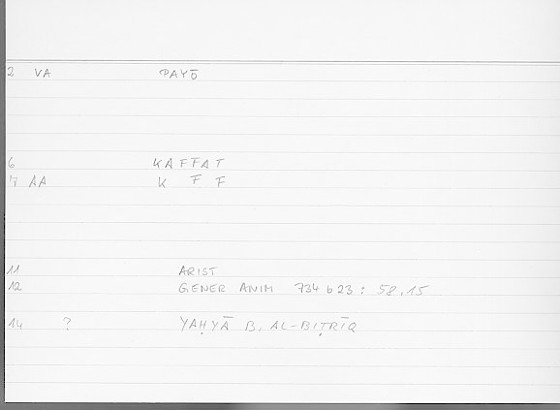 2 VA PAYŌ
6 KAFFAT
7 AA K F F
11 ARIST
12 GENER ANIM 734 b 23 : 58,15
14 ? YAḤYĀ B. AL-BIṬRĪQ